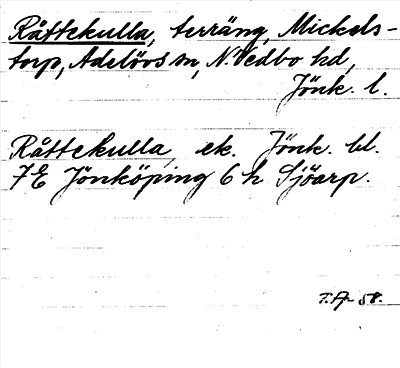 Råttekulla, terräng, Mickels-
torp, Adelövs sn, N. Vedbo hd,
Jönk. l.
Råttekulla, ek. Jönk. bl.
7E Jönköping 6 h Sjöarp.
58.